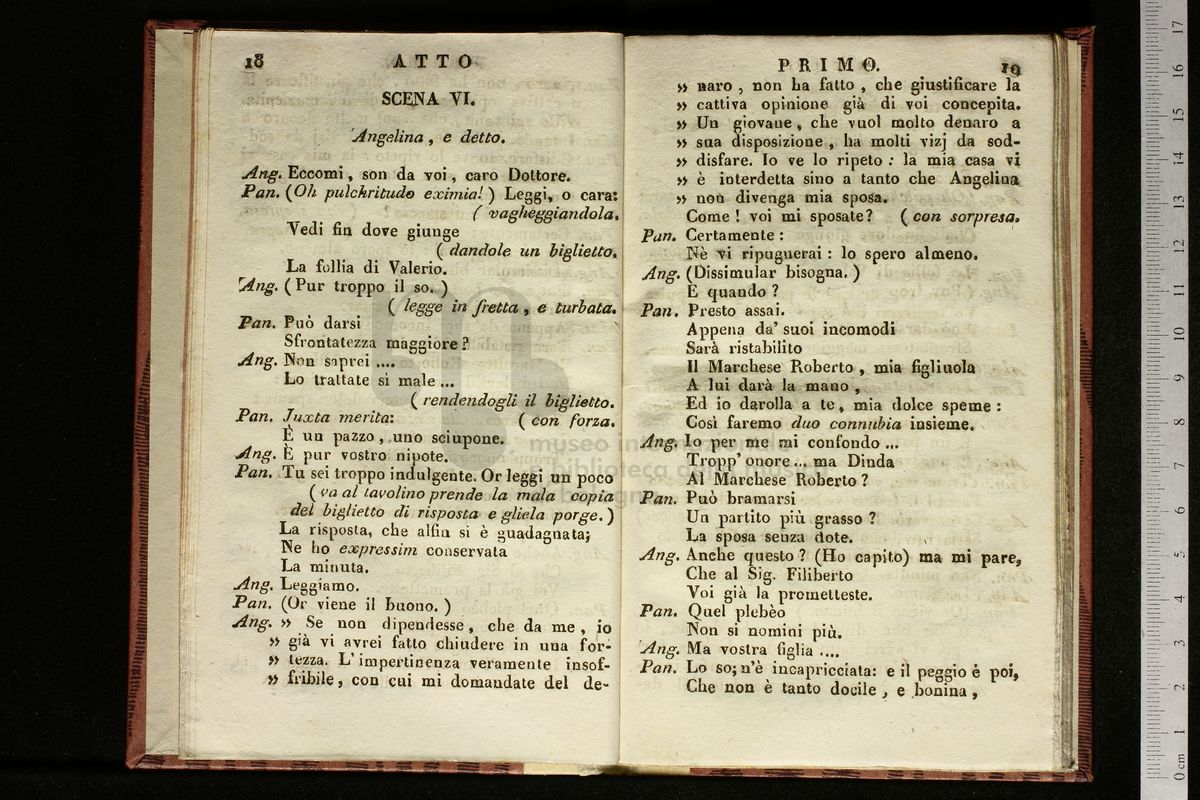 18
ATTO
SCENA VI.
Angelina, e detto.
Ang. Eccomi, son da voi, caro Dottore.
Pan. (Oh pulchritudo eximia!) Leggi, o cara:
( vagheggiandola.
Vedi fin dove giunge
( dandole un biglietto.
La follia di Valerio.
Ang. (Pur troppo il so. )
( legge in fretta, e turbata.
Pan. Può darsi
Sfrontatezza maggiore?
Ang. Non saprei ....
Lo trattate sì male ...
( rendendogli il biglietto.
Pan. Juxta merita: ( con forza.
È un pazzo, uno sciupone.
Ang. È pur vostro nipote.
Pan. Tu sei troppo indulgente. Or leggi un poco
( va al tavolino prende la mala copia
del biglietto di risposta e gliela porge. )
La risposta, che alfin si è guadagnata;
Ne ho expressim conservata
La minuta.
Ang. Leggiamo.
Pan. (Or viene il buono. )
Ang. » Se non dipendesse, che da me, io
» già vi avrei fatto chiudere in una for-
» tezza. L'impertinenza veramente insof-
» fribile, con cui mi domandate del de-
PRIMO.
19
» naro, non ha fatto, che giustificare la
» cattiva opinione già di voi concepita.
» Un giovane, che vuol molto denaro a
» sua disposizione, ha molti vizj da sod-
» disfare. Io ve lo ripeto: la mia casa vi
» è interdetta sino a tanto che Angelina
» non divenga mia sposa.
Come! voi mi sposate? ( con sorpresa.
Pan. Certamente:
Nè vi ripuguerai: lo spero almeno.
Ang. (Dissimular bisogna. )
E quando?
Pan. Presto assai.
Appena da' suoi incomodi
Sarà ristabilito
Il Marchese Roberto, mia figliuola
A lui darà la mano,
Ed io darolla a te, mia dolce speme:
Così faremo duo connubia insieme.
Ang. Io per me mi confondo ...
Tropp' onore... ma Dinda
Al Marchese Roberto?
Pan. Può bramarsi
Un partito più grasso?
La sposa senza dote.
Ang. Anche questo? (Ho capito) ma mi pare,
Che al Sig. Filiberto
Voi già la prometteste.
Pan. Quel plebèo
Non si nomini più.
Ang. Ma vostra figlia ....
Pan. Lo so; n'è incapricciata: e il peggio è poi,
Che non è tanto docile, e bonina,
museo
biblioteca
0 cm 1 2 3 4 5 6 7 8 9 10 11 12 13 14 15 16 17